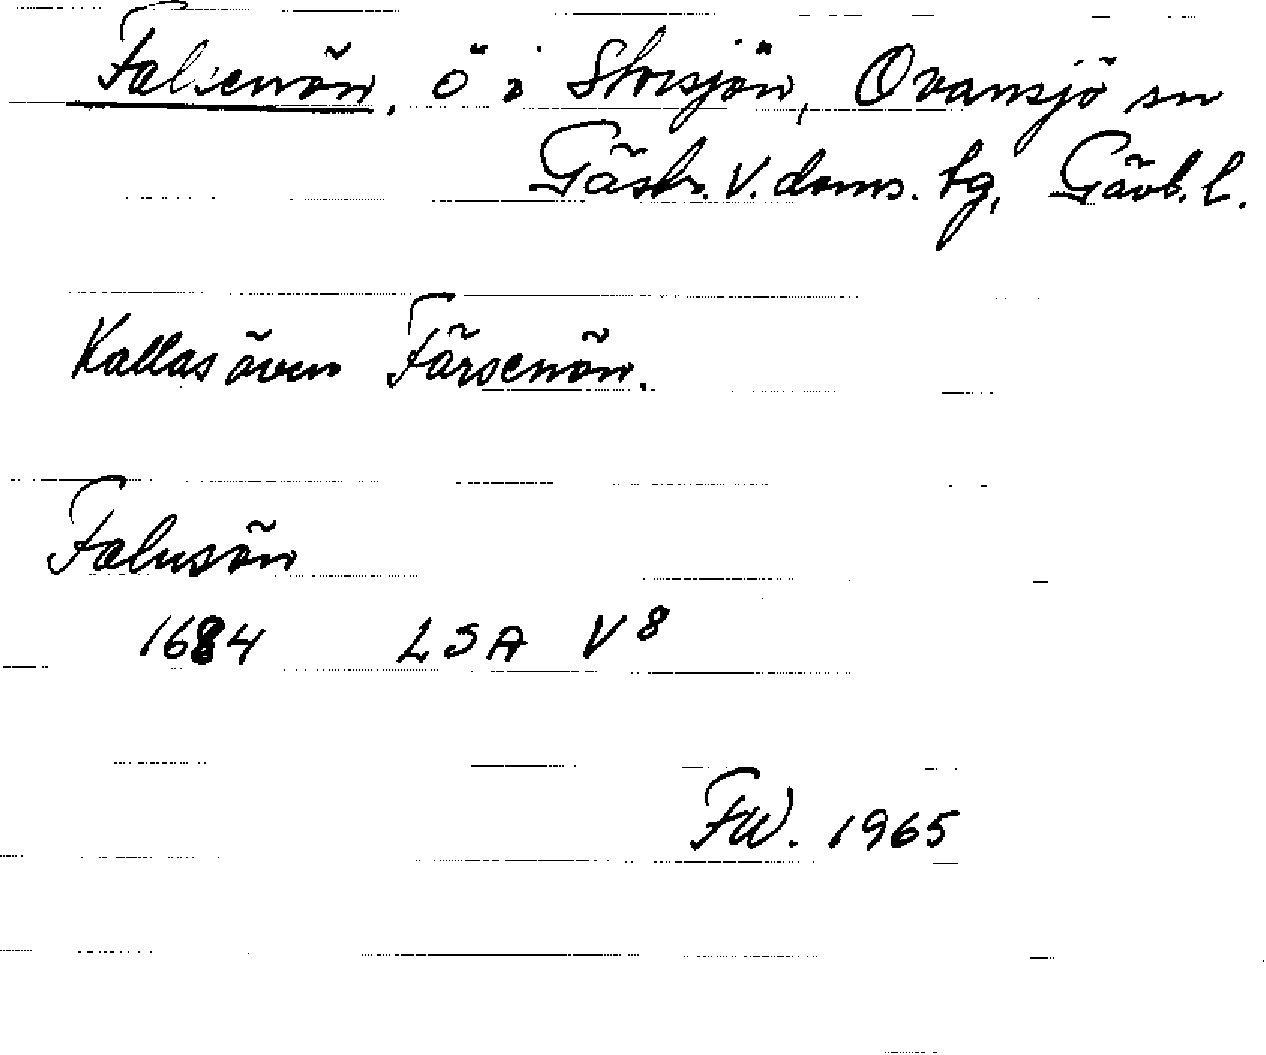 Falsenön, ö i Storsjön, Ovansjö sn
Gästr. V. doms. tg, Gävb. l.
Kallas även Färsenön.
Falusön
1684 LSA V 8
FW. 1965